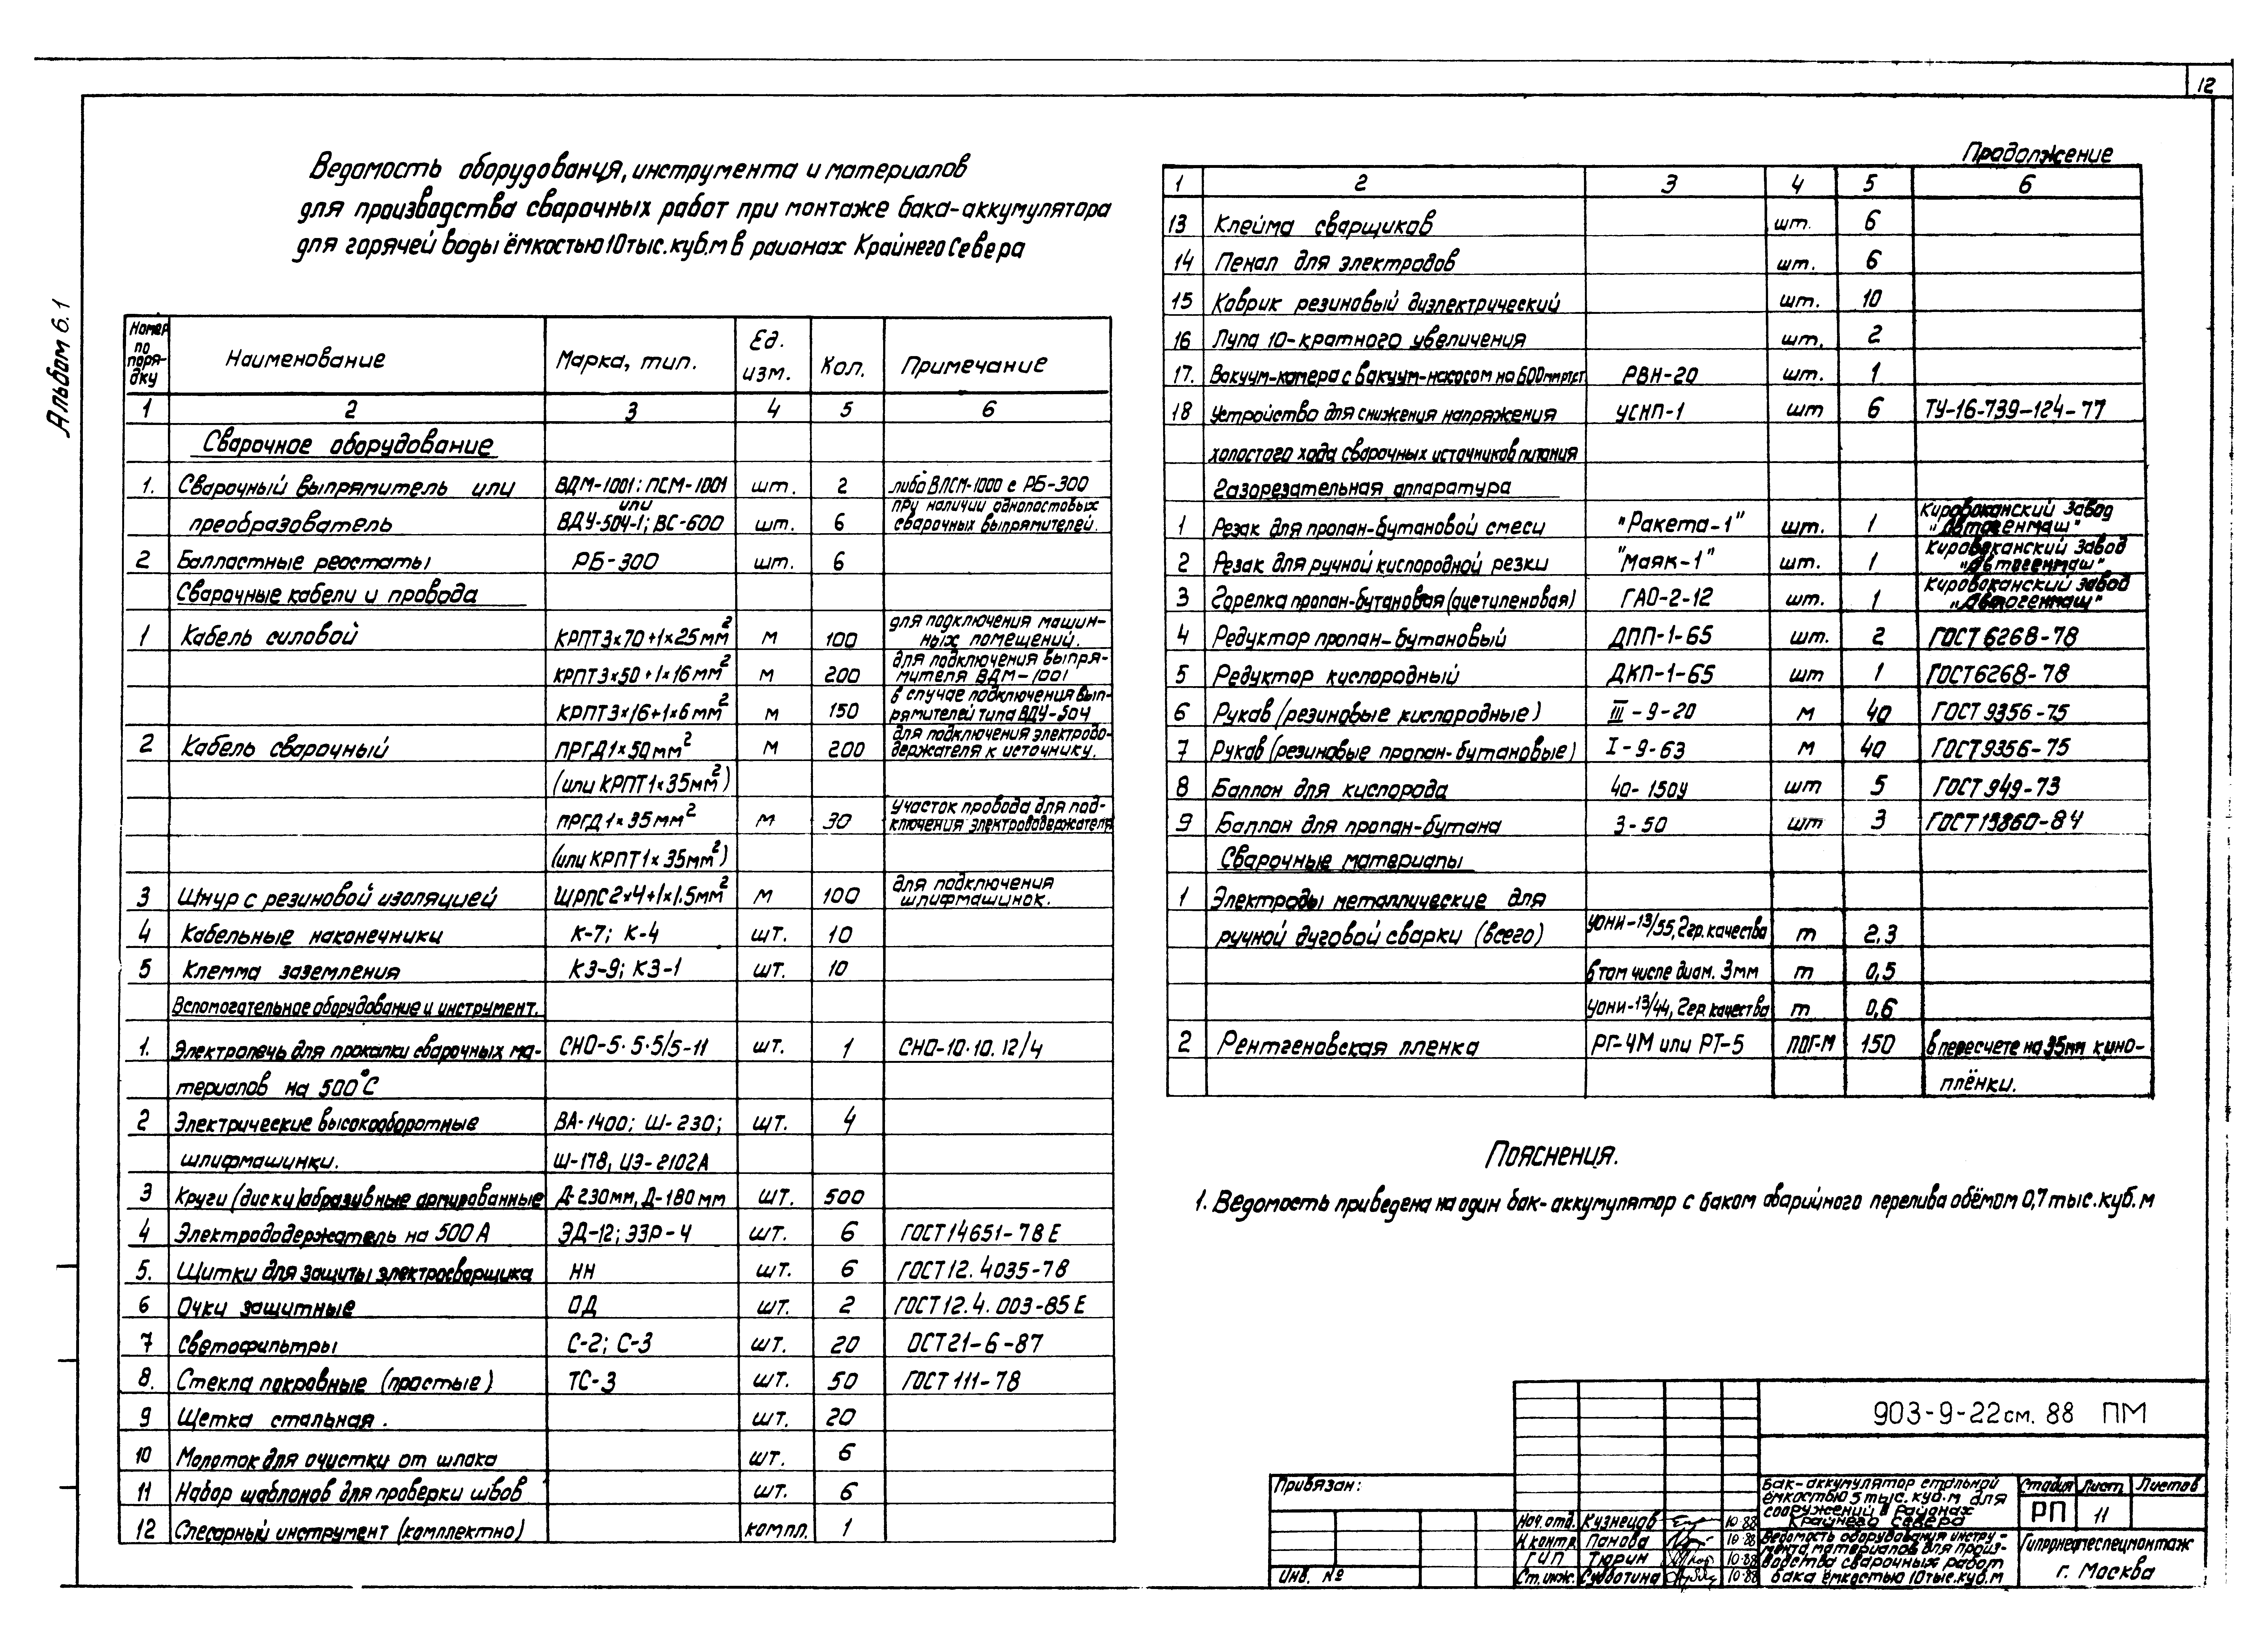 12
Альбом 6.1
Ведомость оборудования, инструмента и материалов
для производства сварочных работ при монтаже бака-аккумулятора
для горячей воды ёмкостью 10 тыс. куб.м в районах Крайнего Севера
Номер по поря-дку | Наименование | Марка, тип. | Ед. изм. | Кол. | Примечание
1 2 3 4 5 6
Сварочное оборудование
1. Сварочный выпрямитель или ВДМ-1001; ПСМ-1001 шт. 2 либо ВПСМ-1000 с РБ-300
или при наличии однопостовых
преобразователь ВДУ-504-1; ВС-600 шт. 6 сварочных выпрямителей.
2 Балластные реостаты РБ-300 шт. 6
Сварочные кабели и провода
для подключения машин-
1 Кабель силовой КРПТ 3×70+1×25мм² м 100 ных помещений.
для подключения выпря-
КРПТ 3×50+1×16мм² м 200 мителя ВДМ-1001
в случае подключения вып-
КРПТ 3×16+1×6мм² м 150 рямителей типа ВДУ-504
для подключения электродо-
2 Кабель сварочный ПРГД 1×50мм² м 200 держателя к источнику.
(или КРПТ 1×35мм²)
Участок провода для под-
ПРГД 1×35мм² м 30 ключения электрододержателя
(или КРПТ 1×35мм²)
для подключения
3 Шнур с резиновой изоляцией ШРПС 2×4+1×1.5мм² м 100 шлифмашинок.
4 Кабельные наконечники К-7; К-4 шт. 10
5 Клемма заземления КЗ-9; КЗ-1 шт. 10
Вспомогательное оборудование и инструмент.
1. Электропечь для прокалки сварочных ма- СНО-5·5·5/5-11 шт. 1 СНО-10·10.12/4
териалов на 500°С
2 Электрические высокооборотные ВА-1400; Ш-230; шт. 4
шлифмашинки. Ш-178, ИЭ-2102А
3 Круги (диски) абразивные армированные Д-230мм, Д-180мм шт. 500
4 Электрододержатель на 500 А ЭД-12; ЭЗР-4 шт. 6 ГОСТ 14651-78 Е
5. Щитки для защиты электросварщика НН шт. 6 ГОСТ 12.4035-78
6 Очки защитные ОД шт. 2 ГОСТ 12.4.003-85 Е
7 Светофильтры С-2; С-3 шт. 20 ОСТ 21-6-87
8. Стекла покровные (простые) ТС-3 шт. 50 ГОСТ 111-78
9 Щетка стальная. шт. 20
10 Молоток для очистки от шлака шт. 6
11 Набор шаблонов для проверки швов шт. 6
12 Слесарный инструмент (комплектно) компл. 1
Продолжение
1 2 3 4 5 6
13 Клейма сварщиков шт. 6
14 Пенал для электродов шт. 6
15 Коврик резиновый диэлектрический шт. 10
16 Лупа 10-кратного увеличения шт. 2
17. Вакуум-камера с вакуум-насосом на 600мм рт.ст. РВН-20 шт. 1
18 Устройство для снижения напряжения УСНП-1 шт 6 ТУ-16-739-124-77
холостого хода сварочных источников питания
Газорезательная аппаратура
Кироваканский завод
1 Резак для пропан-бутановой смеси "Ракета-1" шт. 1 "Автогенмаш"
Кироваканский завод
2 Резак для ручной кислородной резки "Маяк-1" шт. 1 "Автогенмаш"
Кироваканский завод
3 Горелка пропан-бутановая (ацетиленовая) ГАО-2-12 шт. 1 "Автогенмаш"
4 Редуктор пропан-бутановый ДПП-1-65 шт. 2 ГОСТ 6268-78
5 Редуктор кислородный ДКП-1-65 шт 1 ГОСТ 6268-78
6 Рукав (резиновые кислородные) III-9-20 м 40 ГОСТ 9356-75
7 Рукав (резиновые пропан-бутановые) I-9-63 м 40 ГОСТ 9356-75
8 Баллон для кислорода 40-150У шт 5 ГОСТ 949-73
9 Баллон для пропан-бутана 3-50 шт 3 ГОСТ 15860-84
Сварочные материалы
1 Электроды металлические для
ручной дуговой сварки (всего) УОНИ-13/55, 2гр. качества т 2,3
в том числе диам. 3мм т 0,5
УОНИ-13/44, 2гр. качества т 0,6
2 Рентгеновская пленка РГ-4М или РТ-5 пог-м 150 в пересчете на 35мм кино-
плёнки.
Пояснения.
1. Ведомость приведена на один бак-аккумулятор с баком аварийного перелива объёмом 0,7 тыс. куб. м
903-9-22 см. 88 ПМ
Привязан:
Инв. №
Нач. отд. Кузнецов 10·88
Н.контр. Панова 10·88
ГИП Тюрин 10·88
Ст. инж. Субботина 10·88
Бак-аккумулятор стальной
ёмкостью 5 тыс. куб.м для
сооружений в районах
Крайнего Севера
Ведомость оборудования инстру-
мента, материалов для произ-
водства сварочных работ
бака ёмкостью 10 тыс.куб.м
Стадия Лист Листов
РП 11
Гипронефтеспецмонтаж
г. Москва